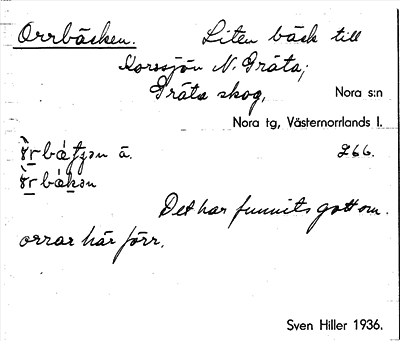 Orrbäcken. Liten bäck till
Korssjön N. Gräta;
Gräta skog, Nora s:n
Nora tg, Västernorrlands l.
o̠r̠bètjən ä. 266.
o̠r̠bèkən
Det har funnits gott om
orrar här förr.
Sven Hiller 1936.